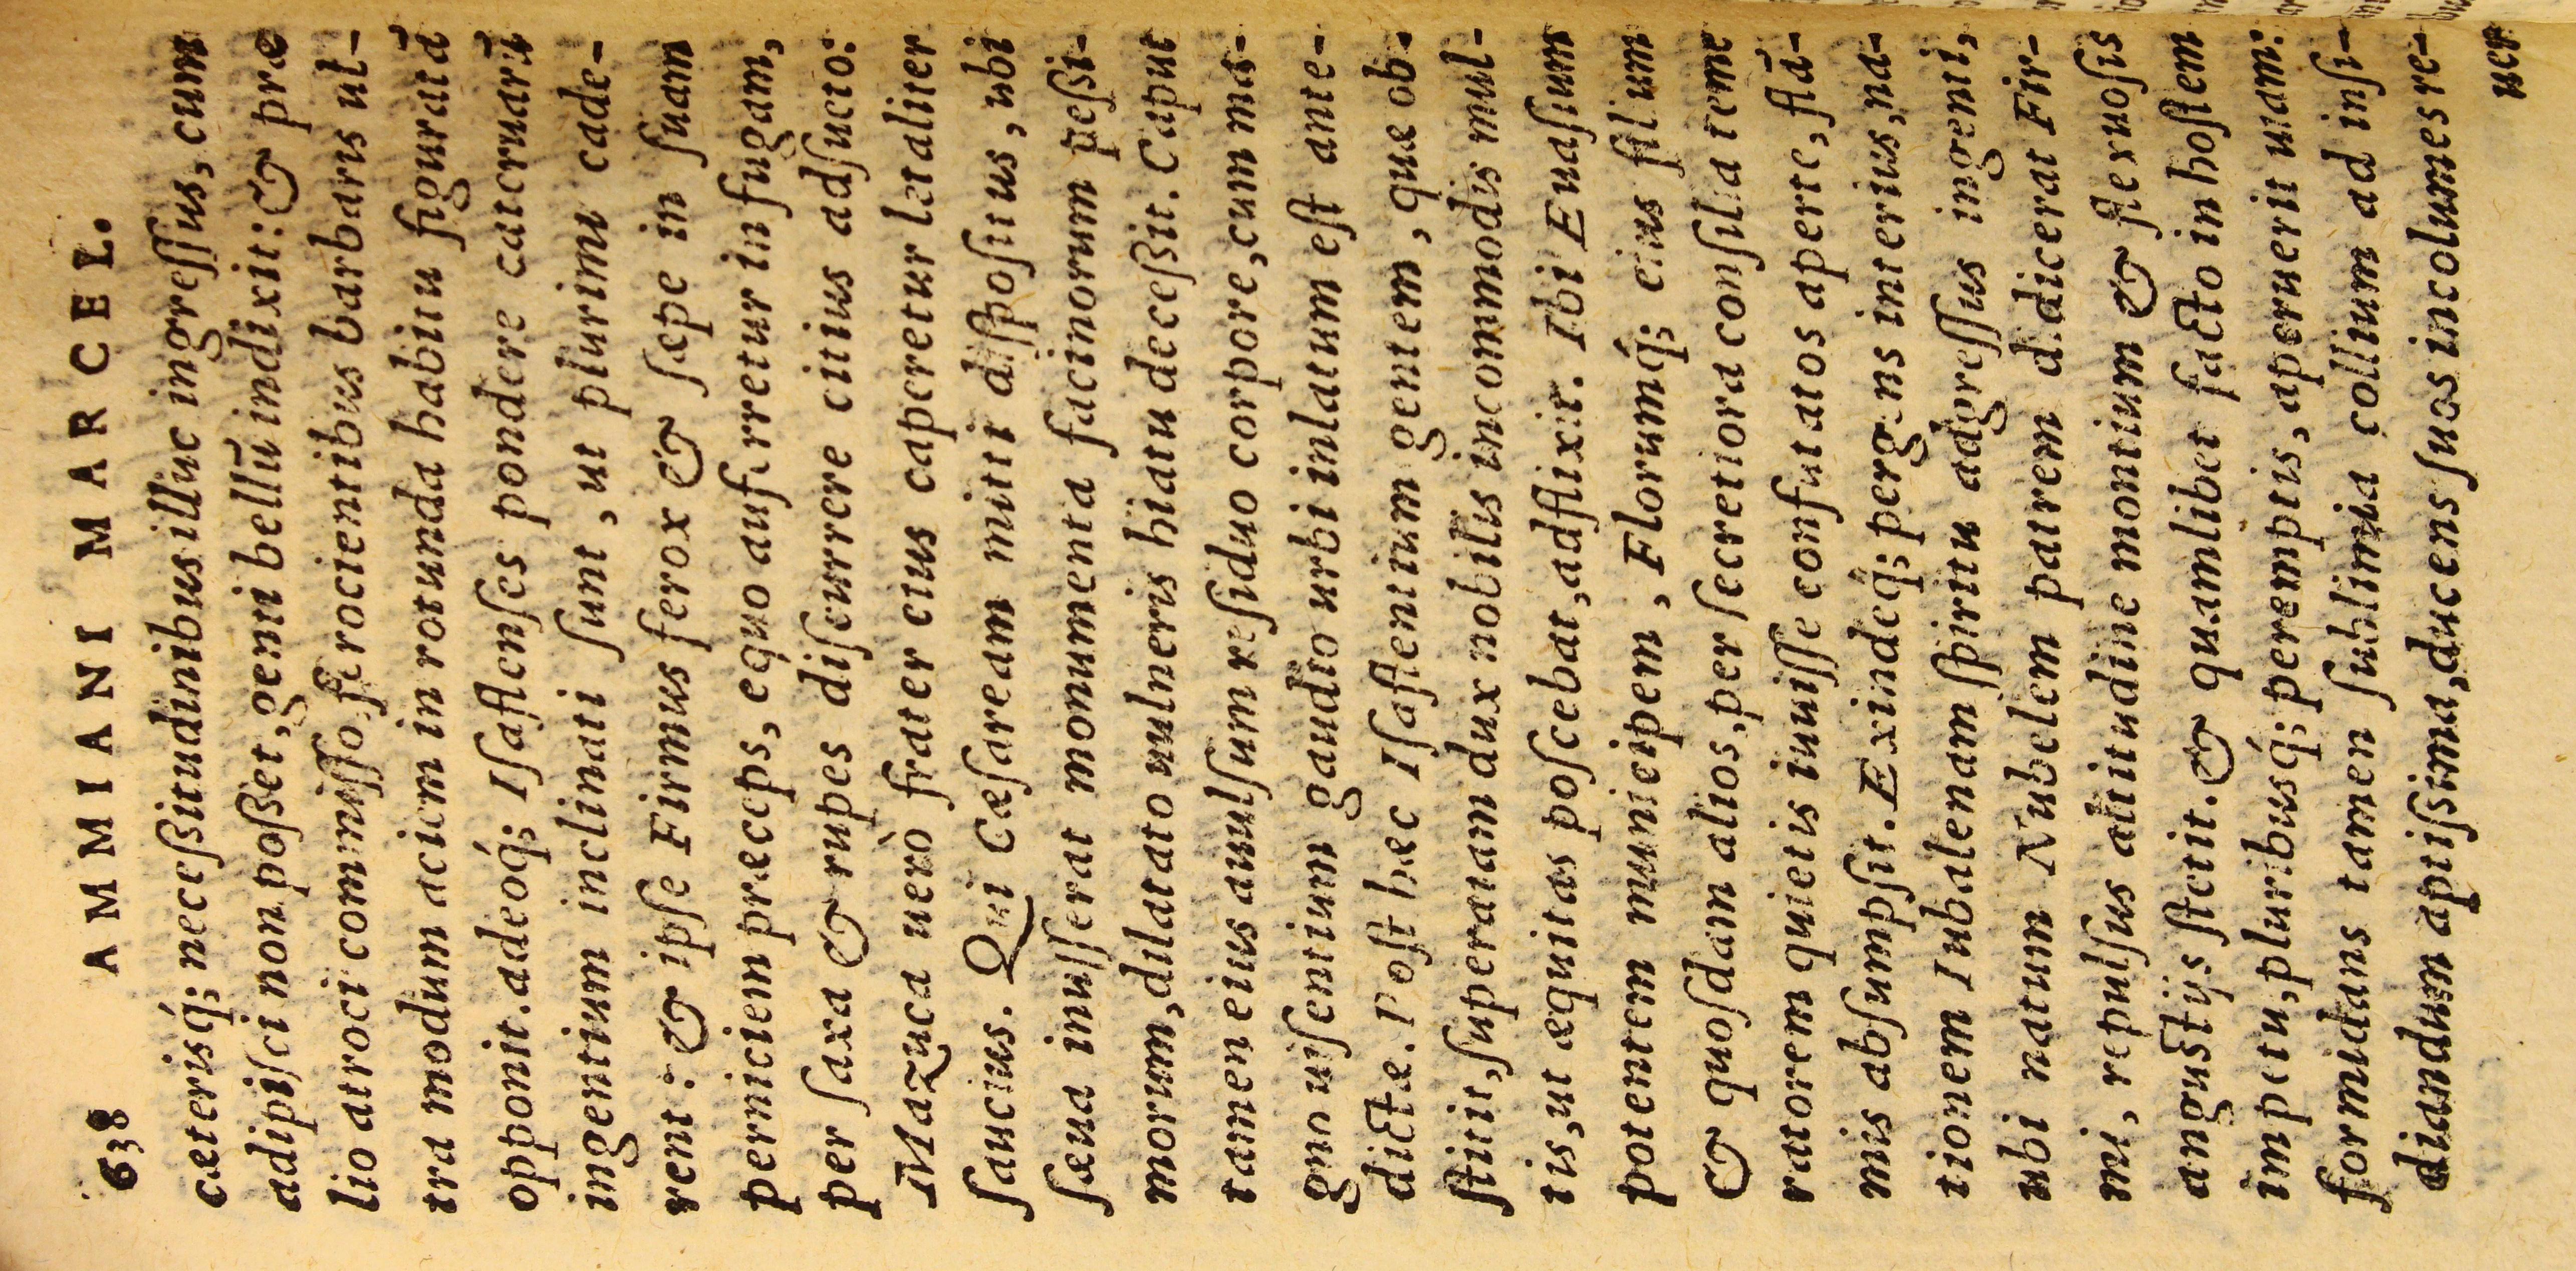 638 AMMIANI MARCEL.
cæterisq́; neceſsitudinibus illuc ingreſſus, cum
adipiſci non poſset, genti bellū indixit: & præ
lio atroci commiſſo, ferocientibus barbaris ul-
tra modum aciem in rotunda habitu figuratā
opponit. adeoq́; Iſaflenſes pondere cateruarū
ingentium inclinati ſunt, ut plurimi cade-
rent: & ipſe Firmus ferox & ſæpe in ſuam
perniciem præceps, equo auferretur in fugam,
per ſaxa & rupes diſcurrere citius adſueto:
Mazuca uerò frater eius caperetur letaliter
ſaucius. Qui Cæſaream mitti diſpoſitus, ubi
ſæua inuſſerat monumenta facinorum peſsi-
morum, dilatato uulneris hiatu deceſsit. Caput
tamen eius auulſum reſiduo corpore, cum ma-
gno uiſentium gaudio urbi inlatum eſt ante-
dictæ. Poſt hæc Iſaflenſium gentem, quæ ob-
ſtitit, ſuperatam dux nobilis incommodis mul-
tis, ut æquitas poſcebat, adflixit. Ibi Euaſium
potentem municipem, Florumq́; eius filium
& quoſdam alios, per ſecretiora conſilia teme
ratorem quietis iuuiſſe confutatos aperte, flā-
mis abſumpſit. Exindeq́; pergens interius, na-
tionem Iubalenam ſpiritu adgreſſus ingenti,
ubi natum Nubelem patrem didicerat Fir-
mi, repulſus altitudine montium & flexuoſis
anguſtijs ſtetit. & quamlibet facto in hoſtem
impetu, pluribusq́; peremptis, aperuerit uiam:
formidans tamen ſublimia collium ad inſi-
diandum aptiſsima, ducens ſuos incolumes re-
uer